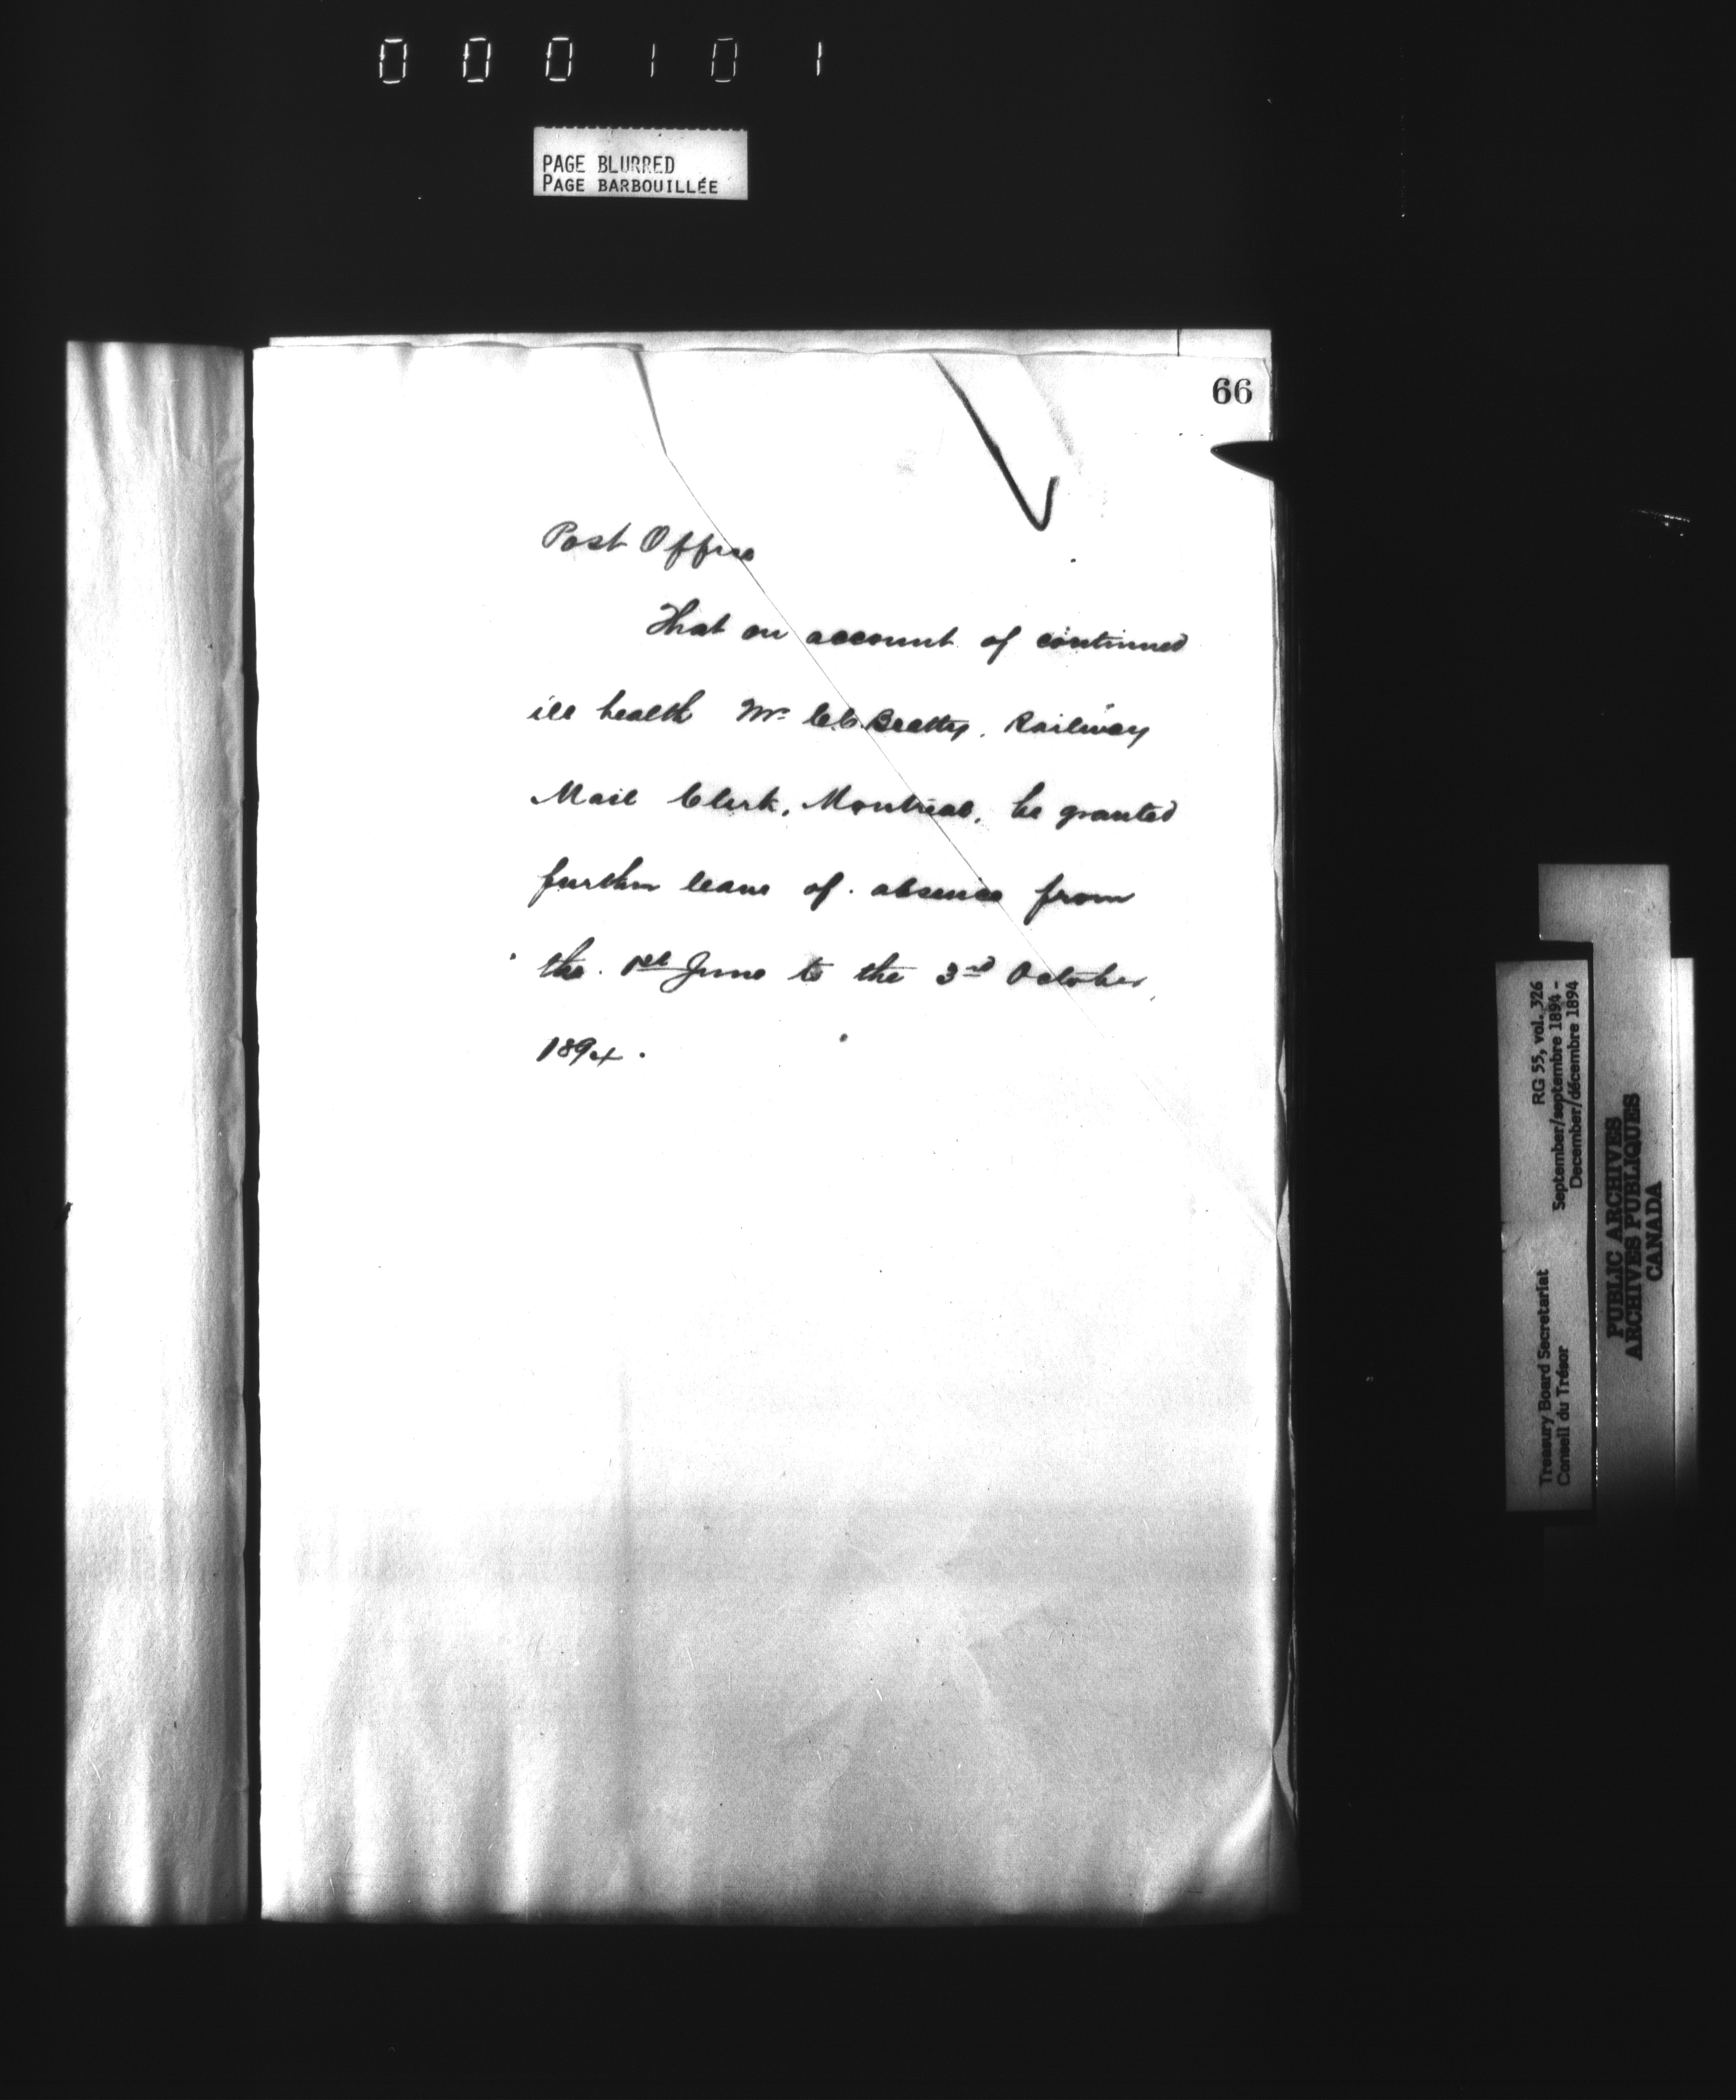 000101
PAGE BLURRED
PAGE BARBOUILLÉE
66
Post Office
That on account of continued
ill health Mr. C.C. Beatty, Railway
Mail Clerk, Montreal, be granted
further leave of absence from
the 1st June to the 3rd October,
1894.
RG 55, vol. 326
September/septembre 1894 -
December/décembre 1894
Treasury Board Secretariat
Conseil du Trésor
PUBLIC ARCHIVES
ARCHIVES PUBLIQUES
CANADA